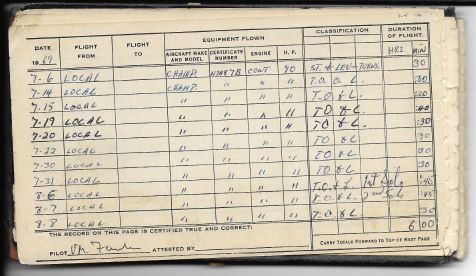 EQUIPMENT FLOWN CLASSIFICATION DURATION OF FLIGHT.
DATE FLIGHT FROM FLIGHT TO AIRCRAFT MAKE AND MODEL CERTIFICATE NUMBER ENGINE H. P. HRS. MIN
1969
7-6 LOCAL CHAMP. CONT 70 ST. & LEV - TURNS. 30
7-14 LOCAL CHAMP. " " " T.O. & L. 30
7-15 LOCAL " " " " T.O. & L. 20
7-19 LOCAL " " " " TO & L 40
7-20 LOCAL " " " " TO & L. 30
7-22 LOCAL " " " " TO & L 30
7-30 LOCAL " " " " TO & L 30
7-31 LOCAL " " " " TO & L 30
8-6 LOCAL " " " " T.O. & L. 1st Solo 45
8-7 LOCAL " " " " TO & L. 2nd Solo 45
8-8 LOCAL " " " " TO & L 30
THE RECORD ON THIS PAGE IS CERTIFIED TRUE AND CORRECT: 6 00
PILOT ATTESTED BY CARRY TOTALS FORWARD TO TOP OF NEXT PAGE